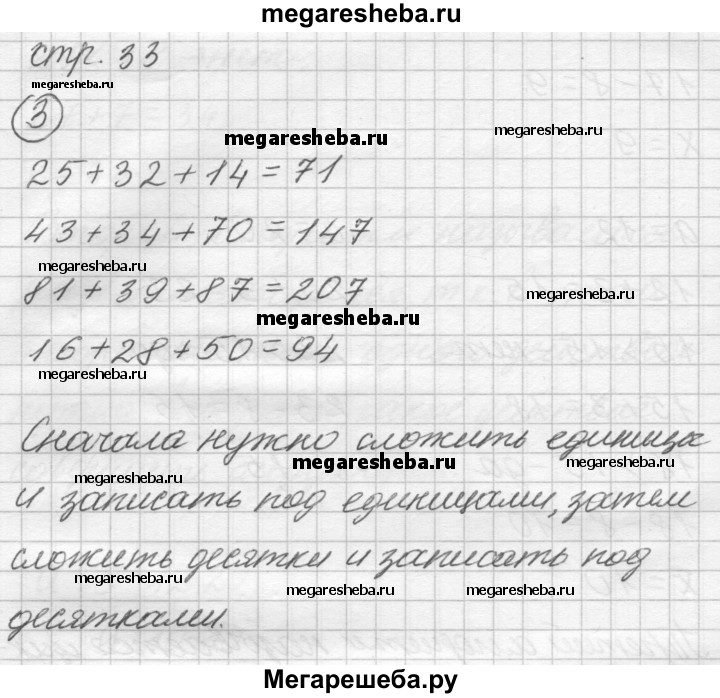 megaresheba.ru
стр. 33
megaresheba.ru
3
megaresheba.ru
megaresheba.ru
25+32+14=71
43+34+70=147
megaresheba.ru
81+39+87=207
megaresheba.ru
megaresheba.ru
16+28+50=94
megaresheba.ru
Сначала нужно сложить единицы
megaresheba.ru
megaresheba.ru
megaresheba.ru
и записать под единицами, затем
сложить десятки и записать под
megaresheba.ru
megaresheba.ru
megaresheba.ru
десятками.
Мегарешеба.ру